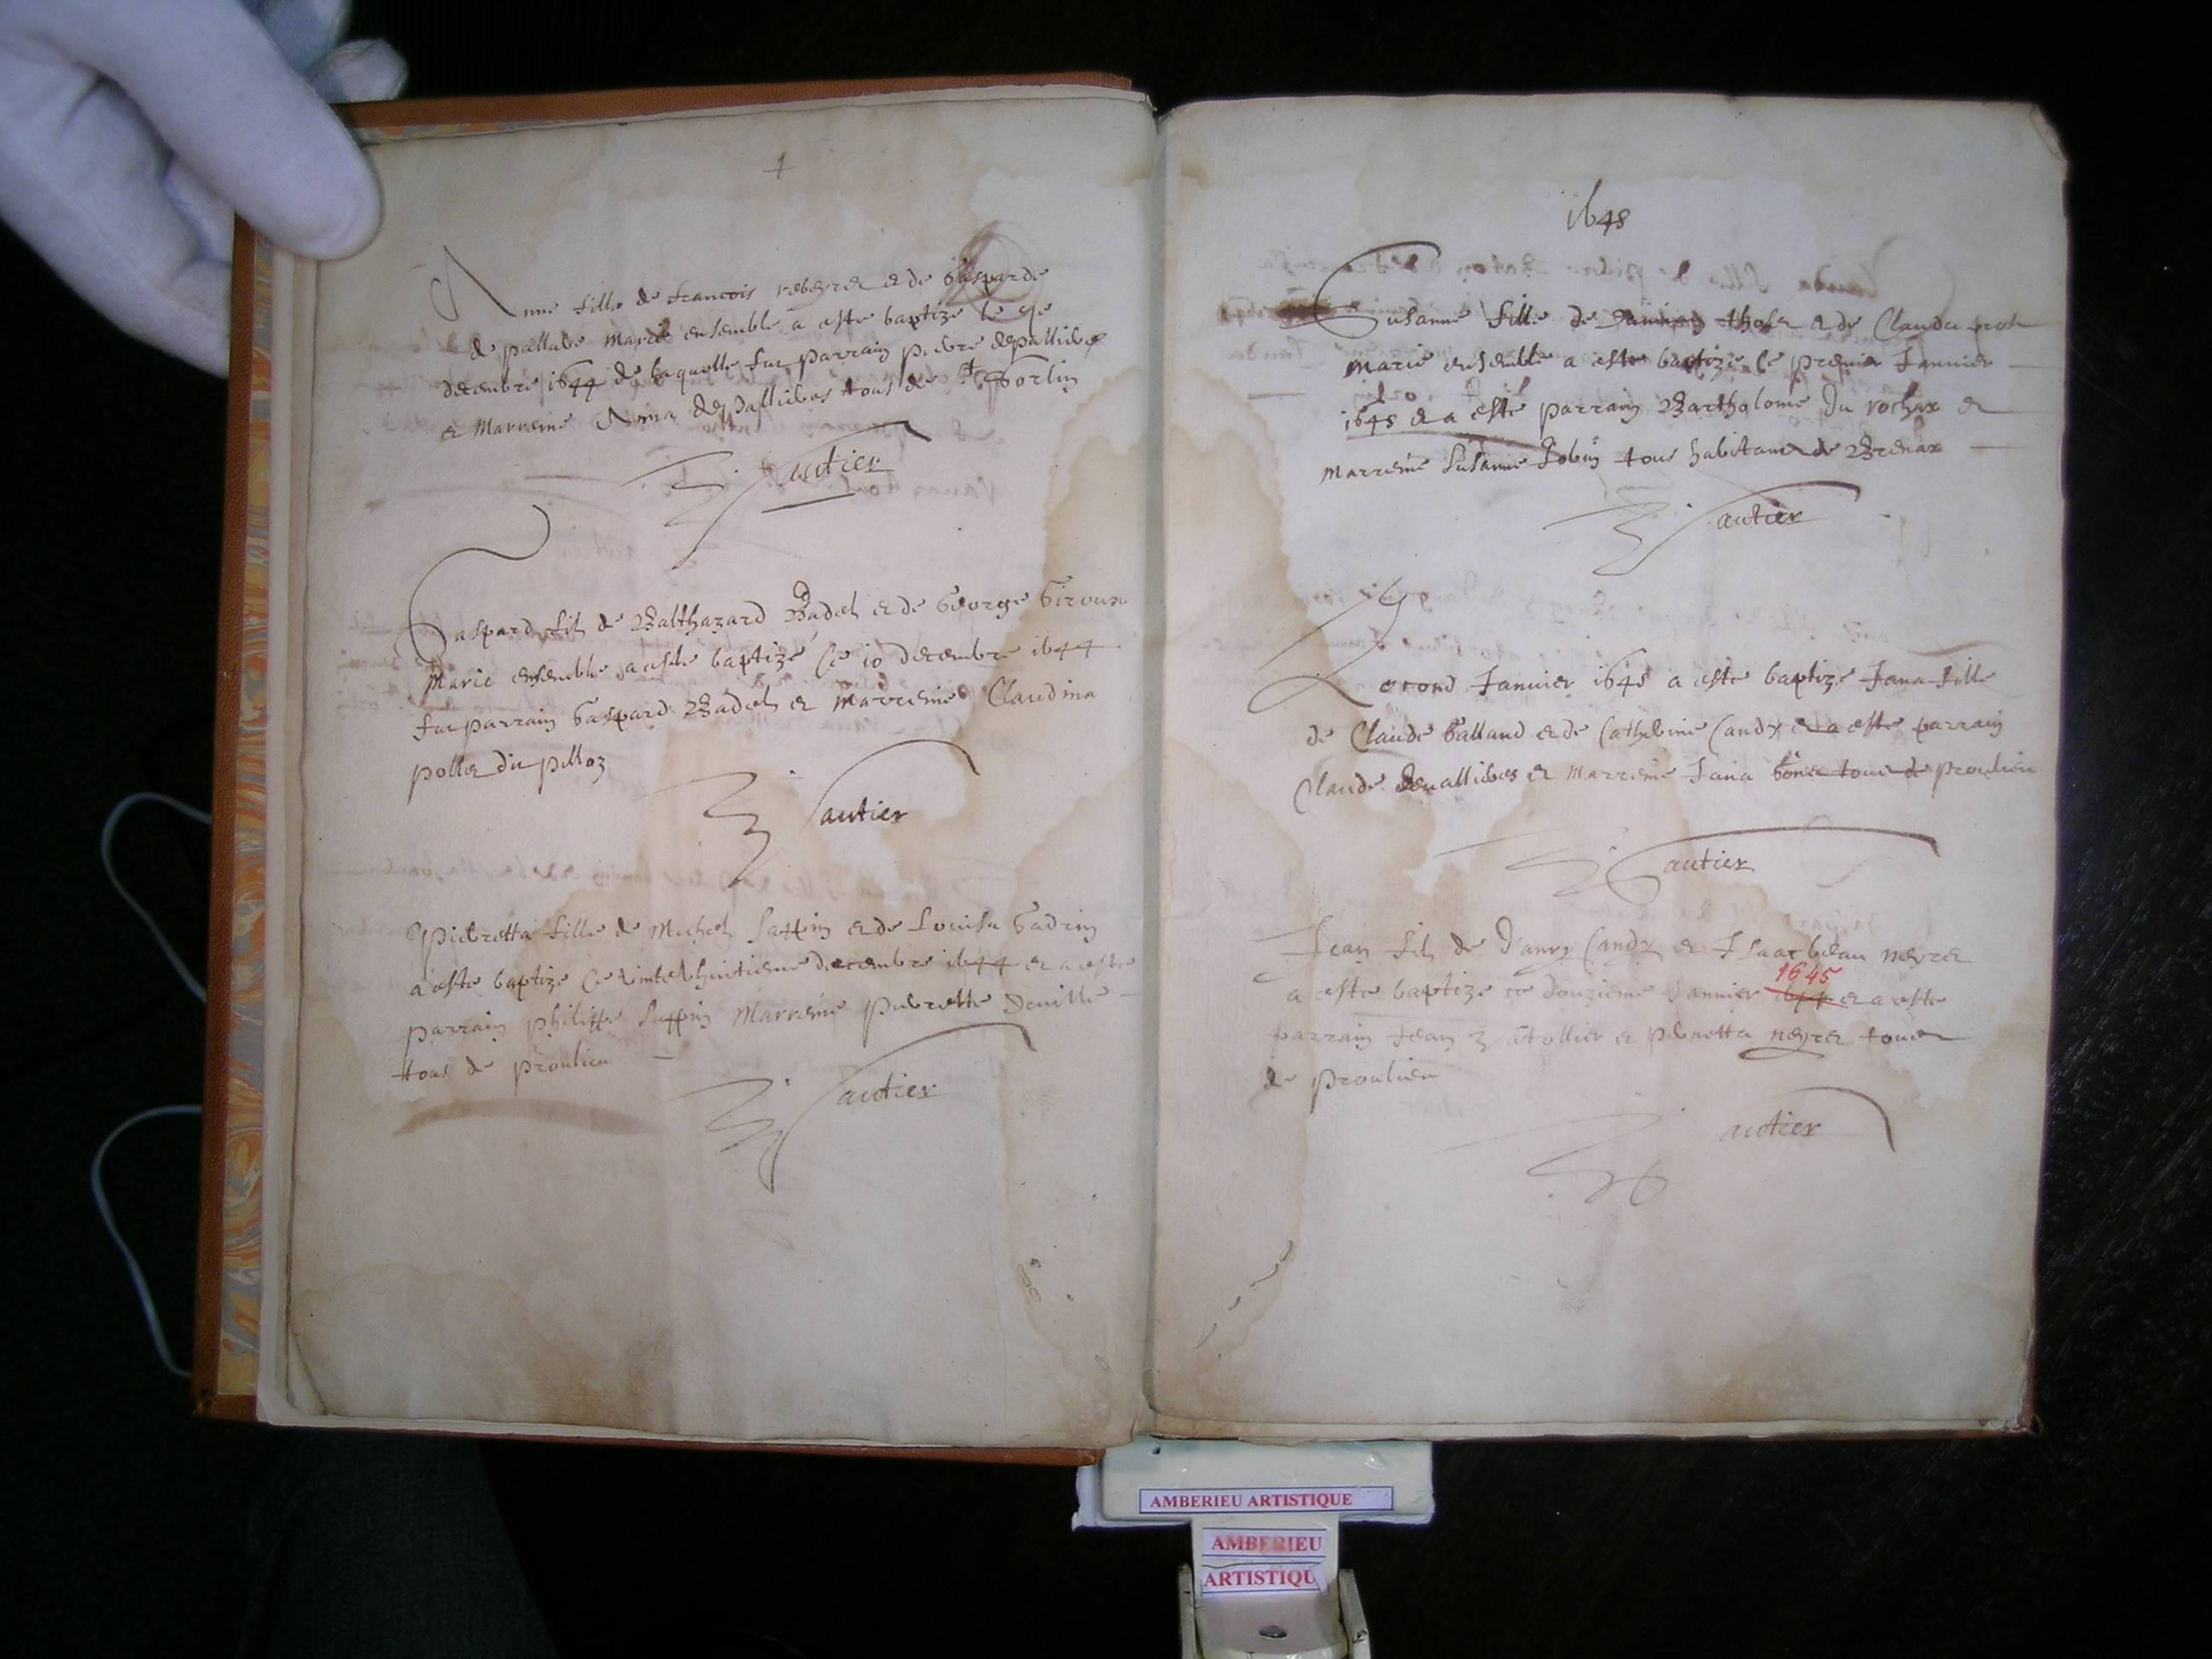 1
Anne fille de francois rebeyret et de Gasparde
de pallübe Marié ensemble a esté baptizé le 9e
decembre 1644 de laquelle fut parrain pierre depallibes
et Marreine Anna depallübes tous de St Sorlin
Gautier
Gaspard fils de Balthazard Badel et de George Giroux
Marié ensemble a esté baptizé ce 10 decembre 1644
fut parrain Gaspard Badel et Marreine Claudina
pollet du pilloz
Gautier
Pierretta fille de Michel Sappin et de Louisa Gadrin
a esté baptizé ce vintehuitieme decembre 1644 et a esté
parrain philippe Sappin Marreine pierrette Deville
tous de proulieu
Gautier
1645
Susanne fille de thol et de Clauda
marié ensemble a esté baptizé ce premier Januier
1645 et a esté parrain Bartholome Du rochax et
marreine Susanne Jobin tous habitans de Brenax
Gautier
Second Januier 1645 a esté baptizé Jana fille
de Claude Galland et de Catherine Candy et a esté parrain
Claude et marreine Jana tous de proulieu
Gautier
Jean fils de Candy et Isaacbeau neyret
a esté baptizé ce douzieme Januier 1644 1645 et a esté
parrain Jean et pernetta neyret tous
de proulieu
Gautier
AMBERIEU ARTISTIQUE
AMBERIEU
ARTISTIQU